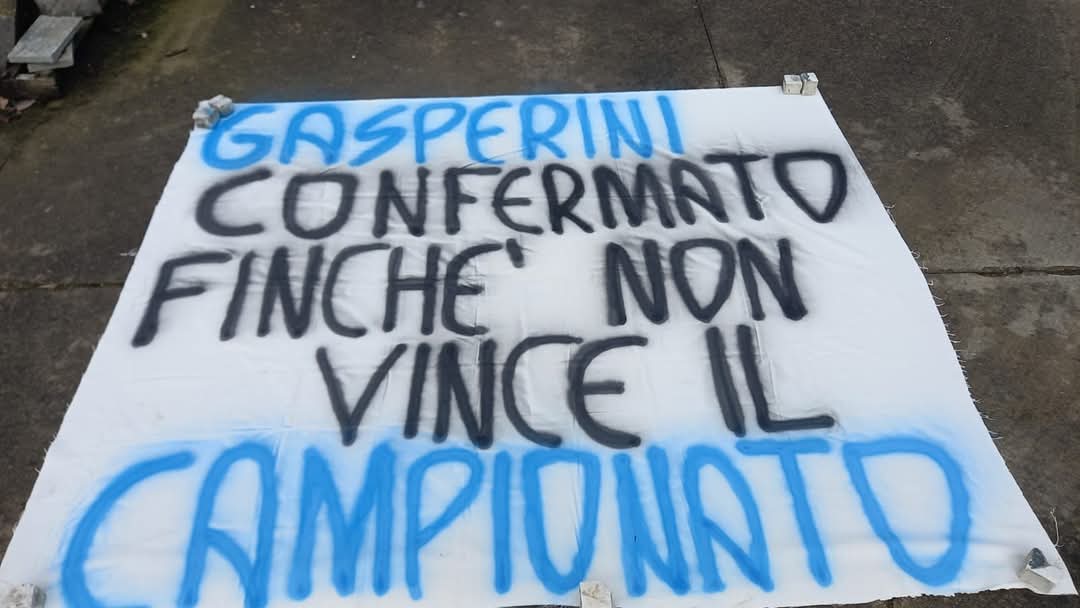 GASPERINI
CONFERMATO
FINCHE' NON
VINCE IL
CAMPIONATO